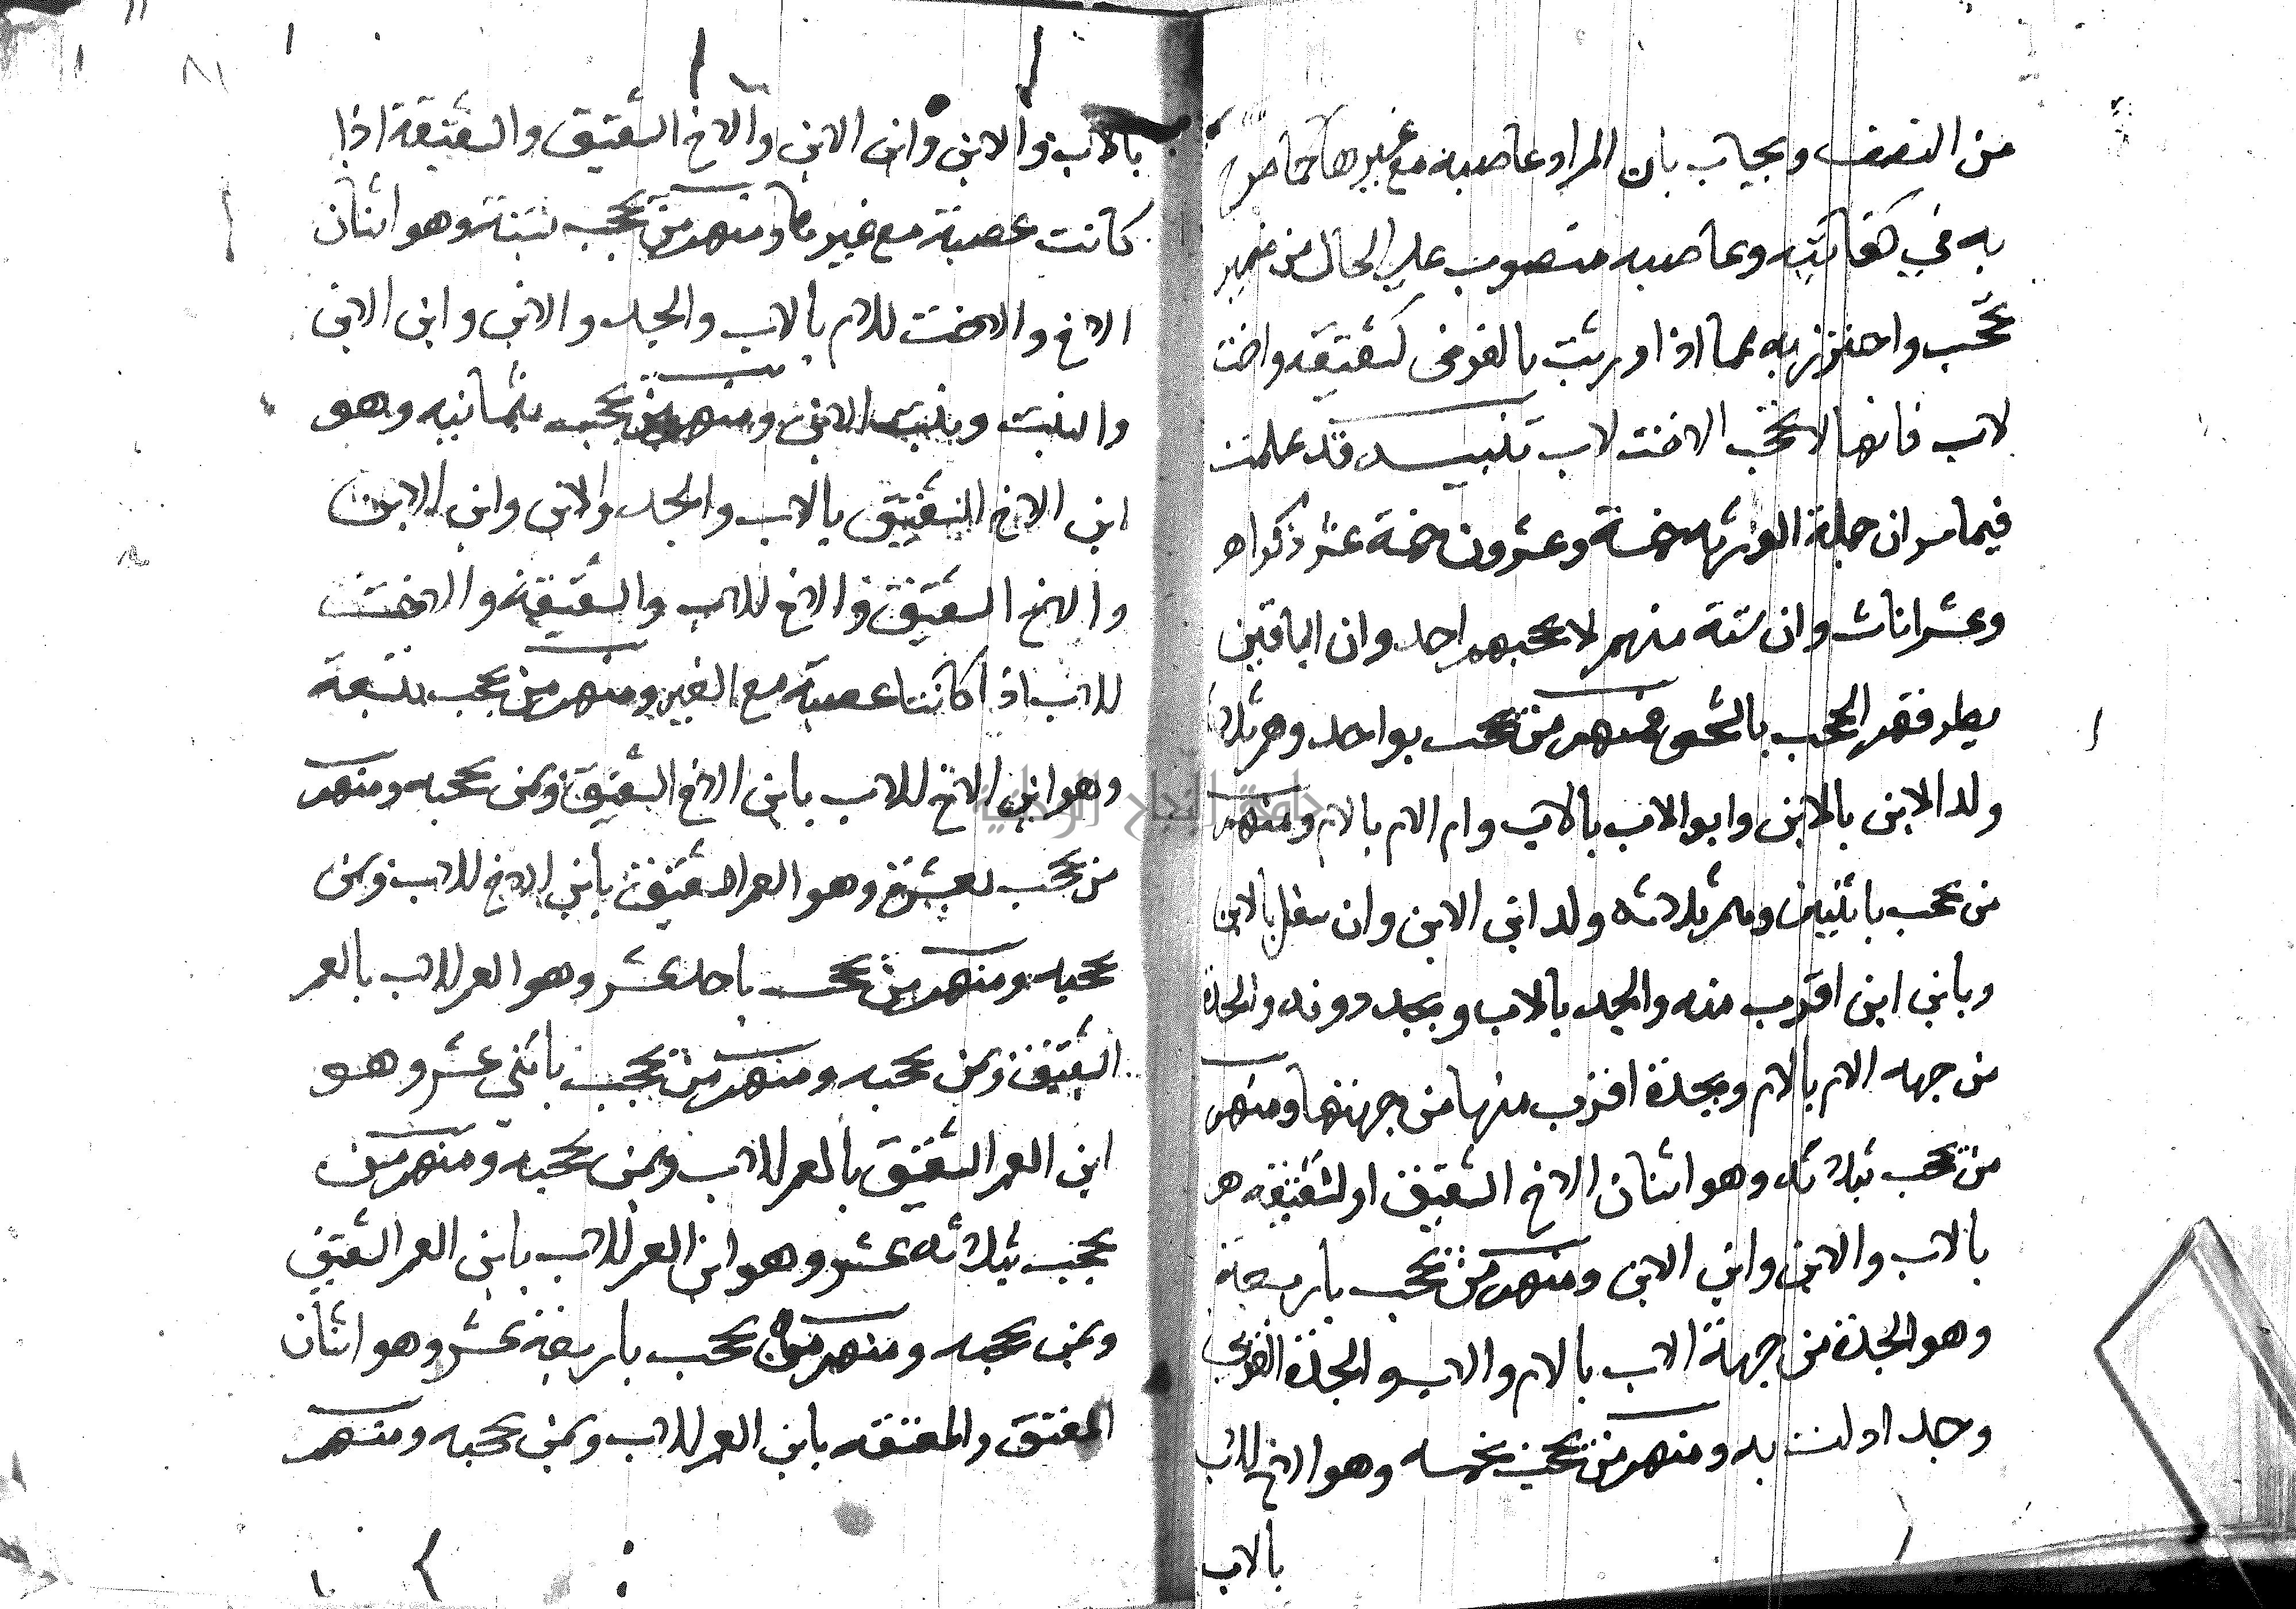 من النصف ويجاب بان المراد عاصبه مع غيرها كما صرح
به في كفايته وعاصبه منصوب على الحال من ضمير
تحجب واحترز به عما اذا ورثت بالفرض كشقيقه واخت
لاب فانها لا تحجب الاخت لاب تنبيه قد علمت
فيما مر ان جملة الورثه خمسة وعشرون خمسة عشر ذكرا
وعشر اناث وان ستة منهم لا يحجبهم احد وان الباقين
يطرقهم الحجب بالشخص فمنهم من يحجب بواحد وهم ثلاثة
ولد الابن بالابن وابو الاب بالاب وام الام بالام ومنهم
من يحجب باثنين وهم ثلاثه ولد ابن الابن وان سفل بالابن
وبابن ابن اقرب منه والجد بالاب وبجد دونه والجدة
من جهه الام بالام وبجدة اقرب منها من جهتها ومنهم
من يحجب بثلاثه وهو اثنان الاخ الشقيق او الشقيقه
بالاب والابن وابن الابن ومنهم من يحجب باربعة
وهو الجدة من جهة الاب بالام والاب والجدة القربى
وجد ادلت به ومنهم من يحجب بخمسه وهو الاخ للاب
بالاب
بالاب والابن وابن الابن والاخ الشقيق والشقيقة اذا
كانت عصبة مع غيرها ومنهم من يحجب بستة وهو اثنان
الاخ والاخت للام بالاب والجد والابن وابن الابن
والبنت وبنت الابن ومنهم من يحجب بثمانيه وهو
ابن الاخ الشقيق بالاب والجد والابن وابن الابن
والاخ الشقيق والاخ للاب والشقيقة والاخت
للاب اذا كانتا عصبة مع الغير ومنهم من يحجب بتسعة
وهو ابن الاخ للاب بابن الاخ الشقيق وبمن يحجبه ومنهم
من يحجب بعشرة وهو العم الشقيق بابن الاخ للاب وبمن
يحجبه ومنهم من يحجب باحد عشر وهو العم للاب بالعم
الشقيق وبمن يحجبه ومنهم من يحجب باثني عشر وهو
ابن العم الشقيق بالعم للاب وبمن يحجبه ومنهم من
يحجب بثلاثه عشر وهو ابن العم للاب بابن العم الشقيق
وبمن يحجبه ومنهم من يحجب باربعة عشر وهو اثنان
المعتق والمعتقه بابن العم للاب وبمن يحجبه ومنهم
جامعة النجاح الوطنية